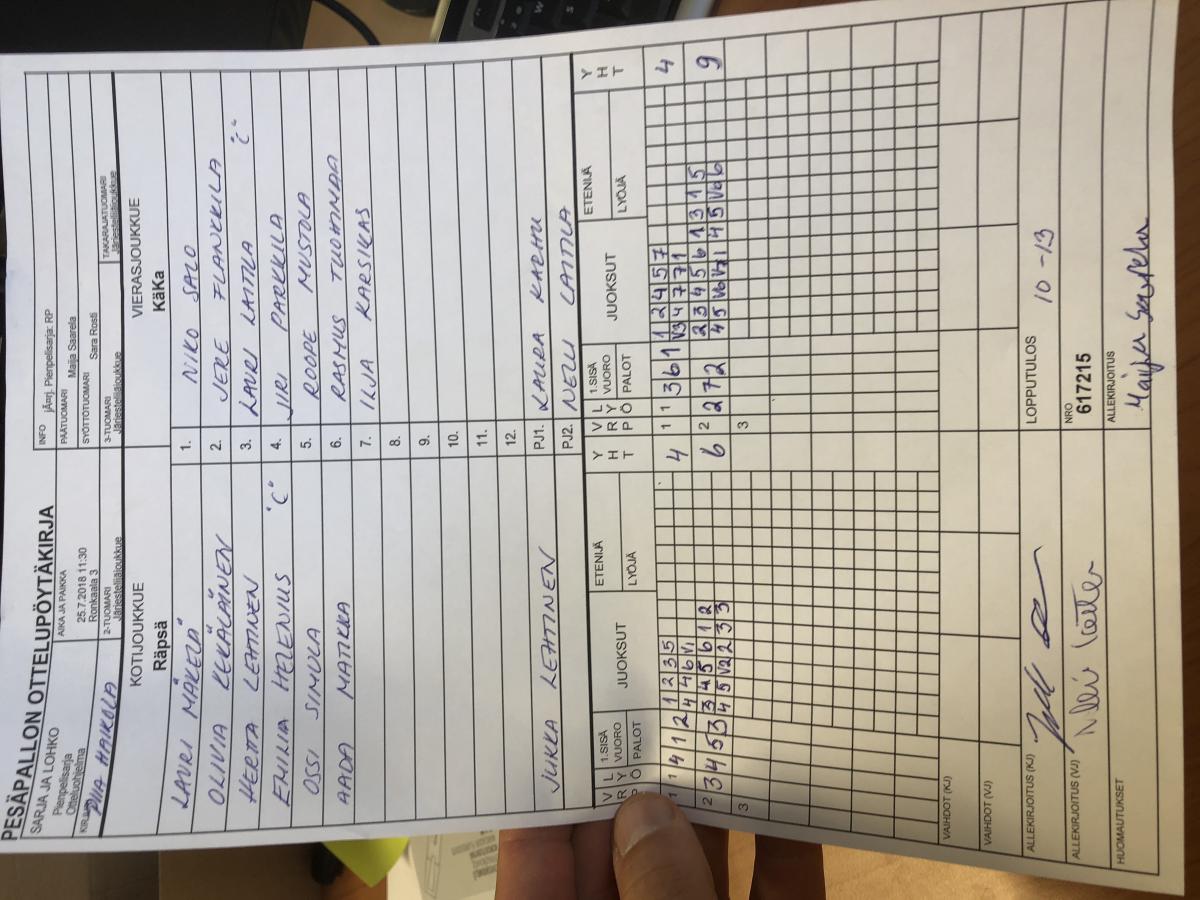 PESÄPALLON OTTELUPÖYTÄKIRJA
SARJA JA LOHKO
Pienpelisarja
Otteluohjelma
AIKA JA PAIKKA
25.7.2018 11:30
Ronkaala 3
INFO jÃ¤rj. Pienpelisarja: RP
PÄÄTUOMARI
SYÖTTÖTUOMARI Maija Saarela
Sara Rosti
2-TUOMARI
Järjestelijäjoukkue
3-TUOMARI
Järjestelijäjoukkue
TAKARAJATUOMARI
Järjestelijäjoukkue
KOTIJOUKKUE
Räpsä
VIERASJOUKKUE
KäKa
LAURI MÄKELÄ 1. NIKO SALO
OLIVIA KEKÄLÄINEN 2. JERE FLANKKILA
HERTTA LEHTINEN 3. LAURI LATTILA "C"
EMILIA HELENIUS "C" 4. JIRI PARKKILA
OSSI SIMULA 5. ROOPE MUSTOLA
AADA MATIKKA 6. RASMUS TUOMINDA
7. ILJA KARSIKAS
8.
9.
10.
11.
12.
JUKKA LEHTINEN PJ1. LAURA KARHU
PJ2. NELLI LATTILA
V R P L Y Ö 1.SISÄ VUORO PALOT JUOKSUT ETENIJÄ LYÖJÄ Y H T V R P L Y Ö 1.SISÄ VUORO PALOT JUOKSUT ETENIJÄ LYÖJÄ Y H T
1 1 4 1 2 1 2 3 5 4 1 1 3 6 1 1 2 4 5 7 4
4 4 6 V1 V3 4 7 7 1
2 3 4 5 3 3 4 5 6 1 2 6 2 2 7 2 2 3 4 5 6 1 3 1 5 9
4 5 V2 2 3 3 4 5 V6 V7 1 4 5 V6 6
3 3
VAIHDOT (KJ)
VAIHDOT (VJ)
ALLEKIRJOITUS (KJ) LOPPUTULOS 10 - 13
ALLEKIRJOITUS (VJ) NRO
617215
HUOMAUTUKSET ALLEKIRJOITUS